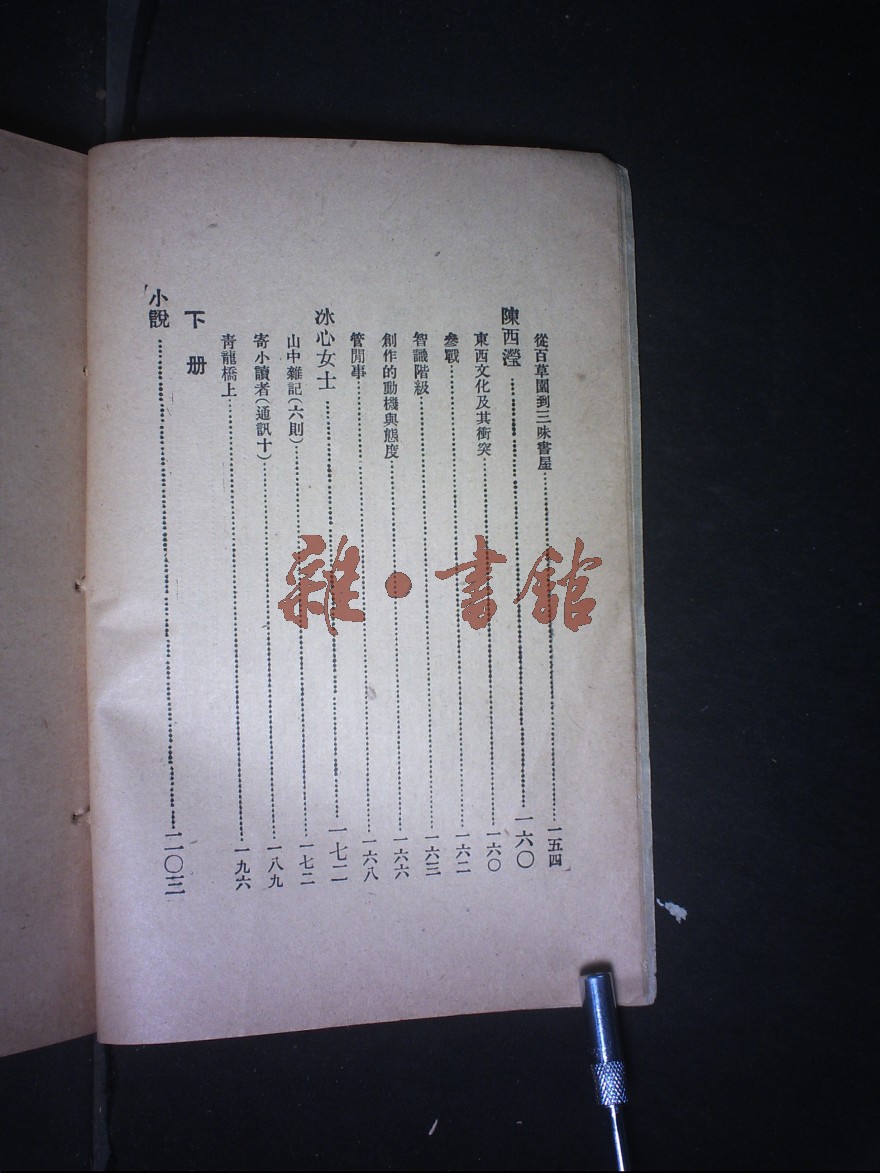 從百草園到三味書屋……一五四
陳西瀅……一六〇
東西文化及其衝突……一六〇
參戰……一六二
智識階級……一六三
創作的動機與態度……一六六
管閒事……一六八
冰心女士……一七二
山中雜記(六則)……一七二
寄小讀者(通訊十)……一八九
青龍橋上……一九六
下册
小說……二〇三
雜·書館